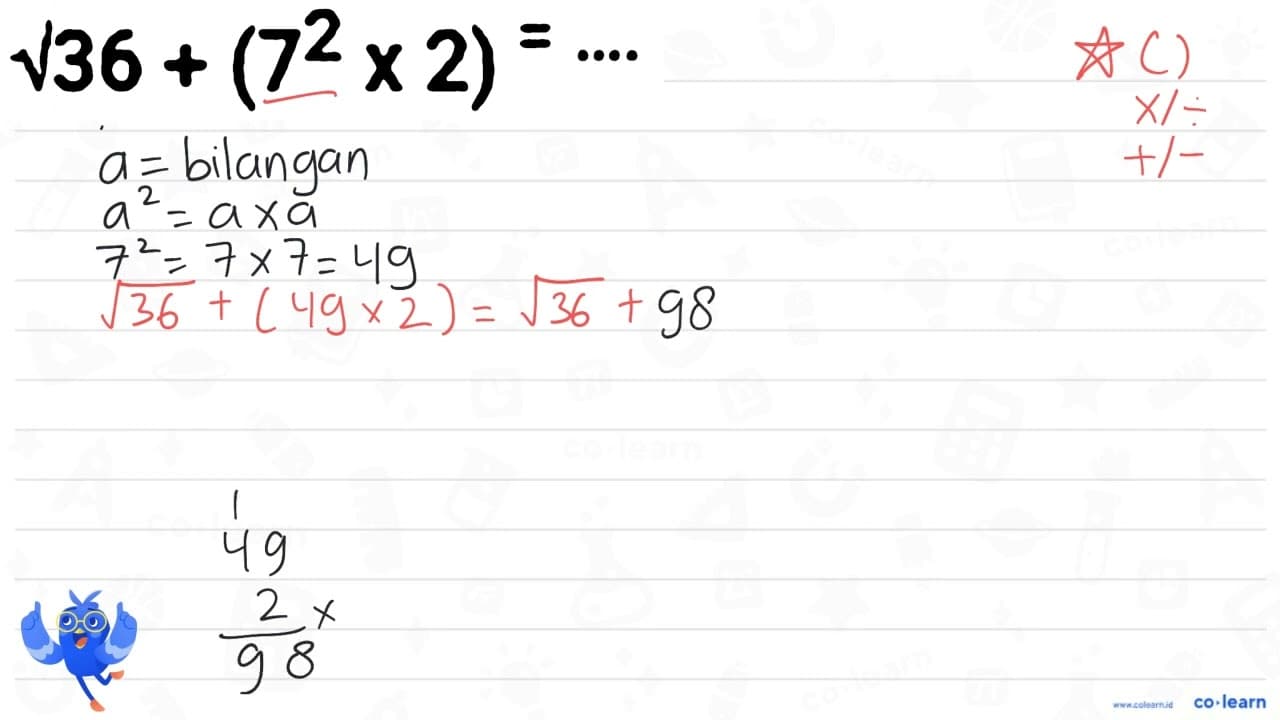 √36 + (7² x 2) = ....
☆ ( )
x/÷
+/-
a = bilangan
a² = a x a
7² = 7 x 7 = 49
√36 + (49 x 2) = √36 + 98
1
49
2 x
98
www.colearn.id co·learn